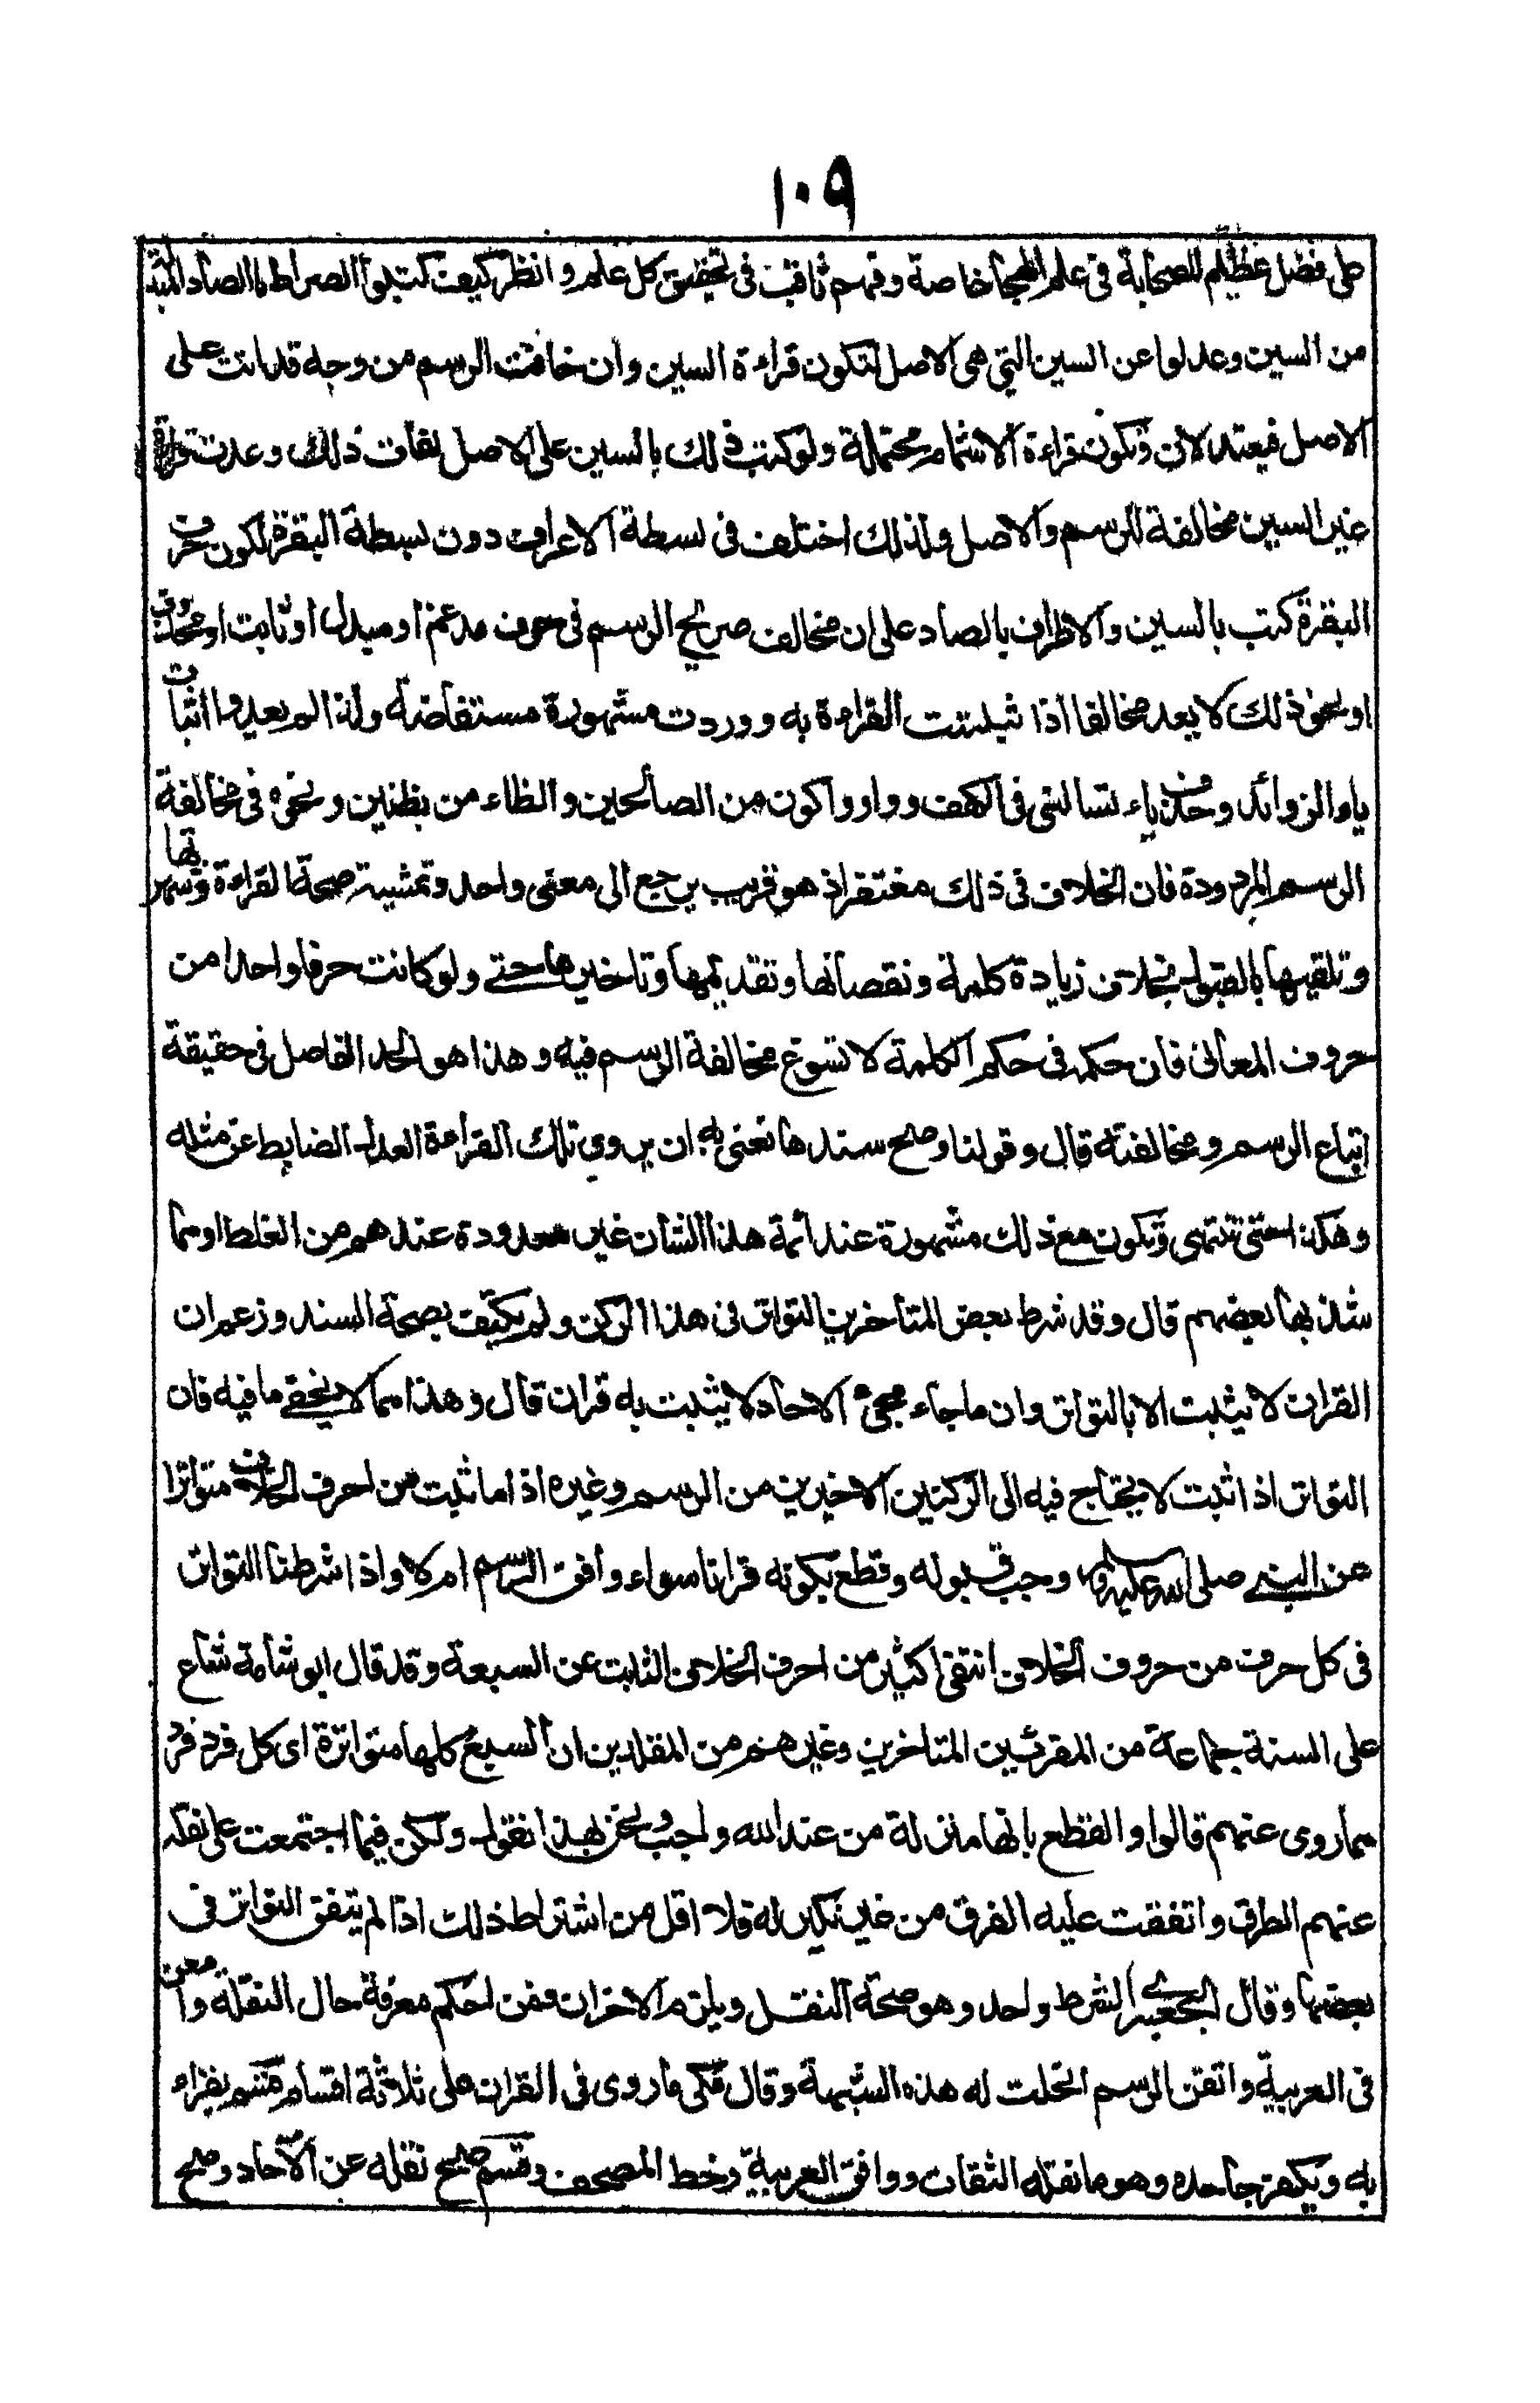 ١٠٩
على فضل عظيم للصحابة في علم الهجا خاصة وفهم ثاقب في تحقيق كل علم وانظر كيف كتبوا الصراط بالصاد المبدلة
من السين وعدلوا عن السين التي هي الاصل لتكون قراءة السين وان خالفت الرسم من وجه قد اتت على
الاصل فيعتدلان وتكون قراءة الاشمام محتملة ولو كتب ذلك بالسين على الاصل لفات ذلك وعدت قراءة
غير السين مخالفة للرسم والاصل ولذلك اختلف في بسطة الاعراف دون بسطة البقرة لكون حرف
البقرة كتب بالسين والاعراف بالصاد على ان مخالف صريح الرسم في حرف مدغم او مبدل او ثابت او محذوف
او نحو ذلك لا يعد مخالفا اذا ثبتت القراءة به ووردت مشهورة مستفاضة ولذا لم يعدوا اثبات
ياء الزوائد وحذف ياء تسالني في الكهف وواو واكون من الصالحين والظاء من بظنين ونحوه في مخالفة
الرسم المردودة فان الخلاف في ذلك مغتفر اذ هو قريب يرجع الى معنى واحد وتمشية صحة القراءة وشهرتها
وتلقيها بالقبول بخلاف زيادة كلمة ونقصانها وتقديمها وتاخيرها حتى ولو كانت حرفا واحدا من
حروف المعاني فان حكمه في حكم الكلمة لا تسوغ مخالفة الرسم فيه وهذا هو الحد الفاصل في حقيقة
اتباع الرسم ومخالفته قال وقولنا وصح سندها نعني به ان يروي تلك القراءة العدل الضابط عن مثله
وهكذا حتى تنتهي وتكون مع ذلك مشهورة عند ائمة هذا الشان غير معدودة عندهم من الغلط او مما
شذ بها بعضهم قال وقد شرط بعض المتاخرين التواتر في هذا الركن ولم يكتف بصحة السند وزعم ان
القران لا يثبت الا بالتواتر وان ما جاء مجئ الاحاد لا يثبت به قران قال وهذا مما لا يخفى ما فيه فان
التواتر اذا ثبت لا يحتاج فيه الى الركنين الاخيرين من الرسم وغيره اذ ما ثبت من احرف الخلاف متواترا
عن النبي صلى الله عليه وسلم وجب قبوله وقطع بكونه قرانا سواء وافق الرسم ام لا واذا شرطنا التواتر
في كل حرف من حروف الخلاف انتفى كثير من احرف الخلاف الثابت عن السبعة وقد قال ابو شامة شاع
على السنة جماعة من المقرئيين المتاخرين وغيرهم من المقلدين ان السبع كلها متواترة اى كل فرد فرد
مما روى عنهم قالوا والقطع بانها منزلة من عند الله واجب ونحن بهذا نقول ولكن فيما اجتمعت على نقله
عنهم الطرق واتفقت عليه الفرق من غير نكير له فلا اقل من اشتراط ذلك اذا لم يتفق التواتر في
بعضها وقال الجعبرى الشرط واحد وهو صحة النقل ويلزم الاخران فمن احكم معرفة حال النقلة وامعن
في العربية واتقن الرسم انحلت له هذه الشبهة وقال مكي ما روى في القران على ثلاثة اقسام قسم يقراء
به ويكفر جاحده وهو ما نقله الثقات ووافق العربية وخط المصحف وقسم صح نقله عن الاحاد وصح